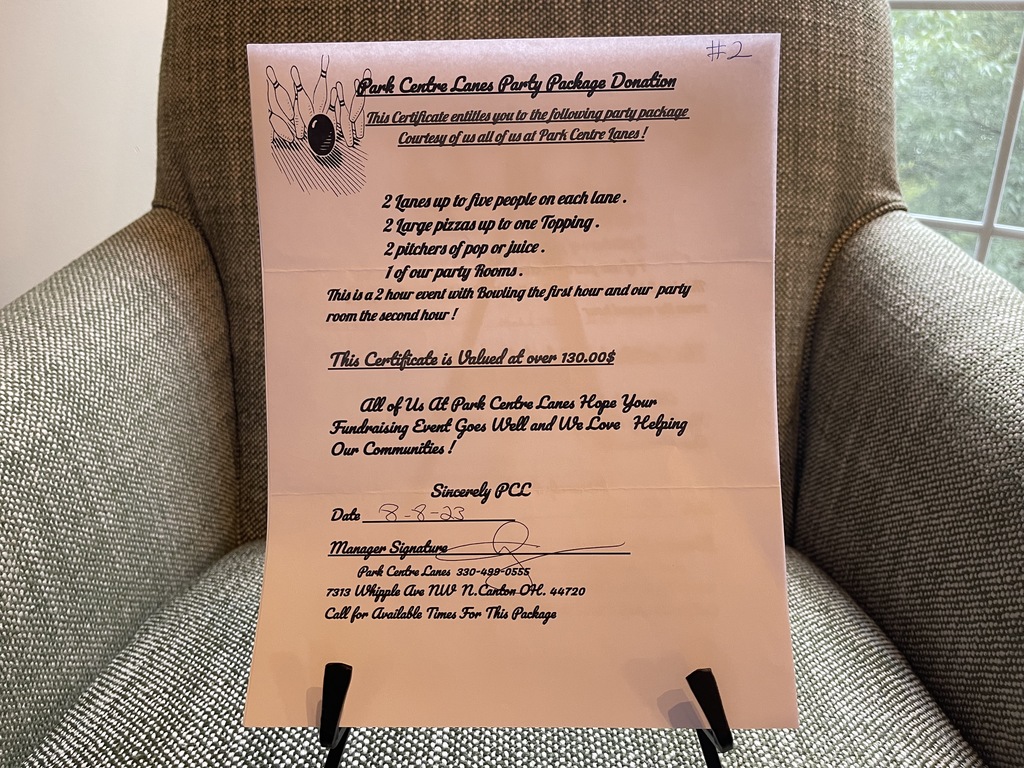 #2
Park Centre Lanes Party Package Donation
This Certificate entitles you to the following party package
Courtesy of us all of us at Park Centre Lanes !
2 Lanes up to five people on each lane .
2 Large pizzas up to one Topping .
2 pitchers of pop or juice .
1 of our party Rooms .
This is a 2 hour event with Bowling the first hour and our party
room the second hour !
This Certificate is Valued at over 130.00$
All of Us At Park Centre Lanes Hope Your
Fundraising Event Goes Well and We Love Helping
Our Communities !
Sincerely PCL
Date 8-8-23
Manager Signature
Park Centre Lanes 330-499-0555
7313 Whipple Ave NW N.Canton OH. 44720
Call for Available Times For This Package